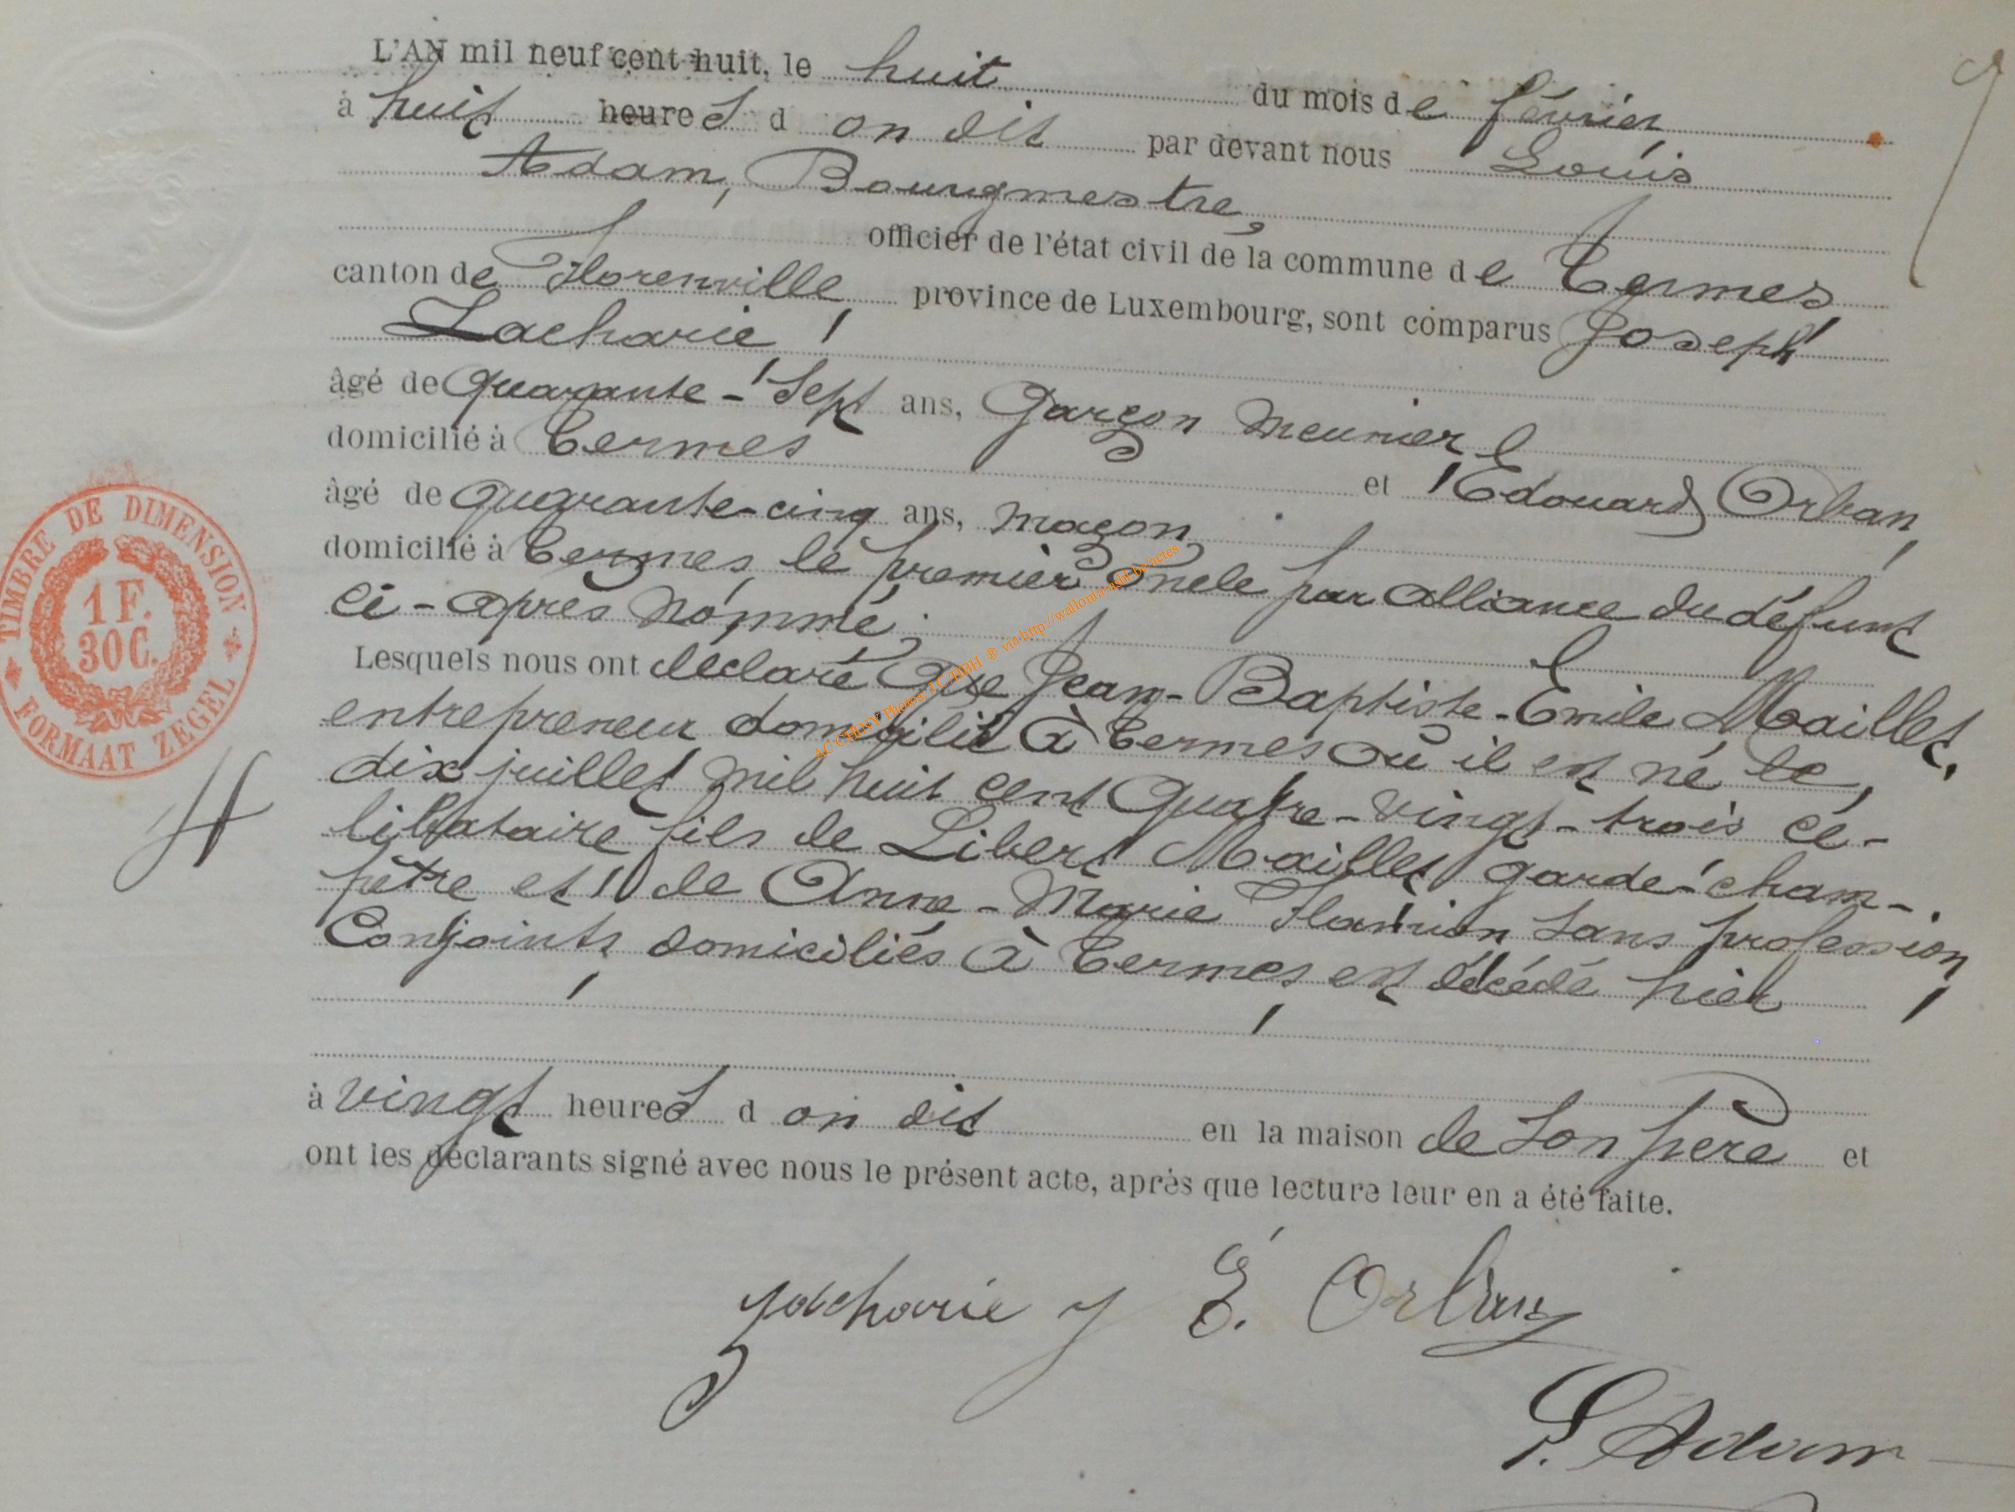 L'AN mil neuf cent huit, le huit du mois de février
à huit heures d on dit par devant nous Louis
Adam, Bourgmestre,
officier de l'état civil de la commune de Termes,
canton de Florenville, province de Luxembourg, sont comparus Joseph
Zacharie,
âgé de quarante-sept ans, garçon meunier
domicilié à Termes et Edouard Orban,
âgé de quarante-cinq ans, maçon
domicilié à Termes, le premier oncle par alliance du défunt
ci-après nommé,
Lesquels nous ont déclaré que Jean-Baptiste-Emile Maillet,
entrepreneur domicilié à Termes où il est né le
dix juillet mil huit cent quatre-vingt-trois cé-
libataire fils de Libert Maillet garde-cham-
pêtre et de Anne-Marie Flamion sans profession
Conjoints domiciliés à Termes est décédé hier
à vingt heures d on dit en la maison de son père et
ont les déclarants signé avec nous le présent acte, après que lecture leur en a été faite.
Zacharie J E. Orban
L. Adam
TIMBRE DE DIMENSION
1 F.
30 C.
FORMAAT ZEGEL